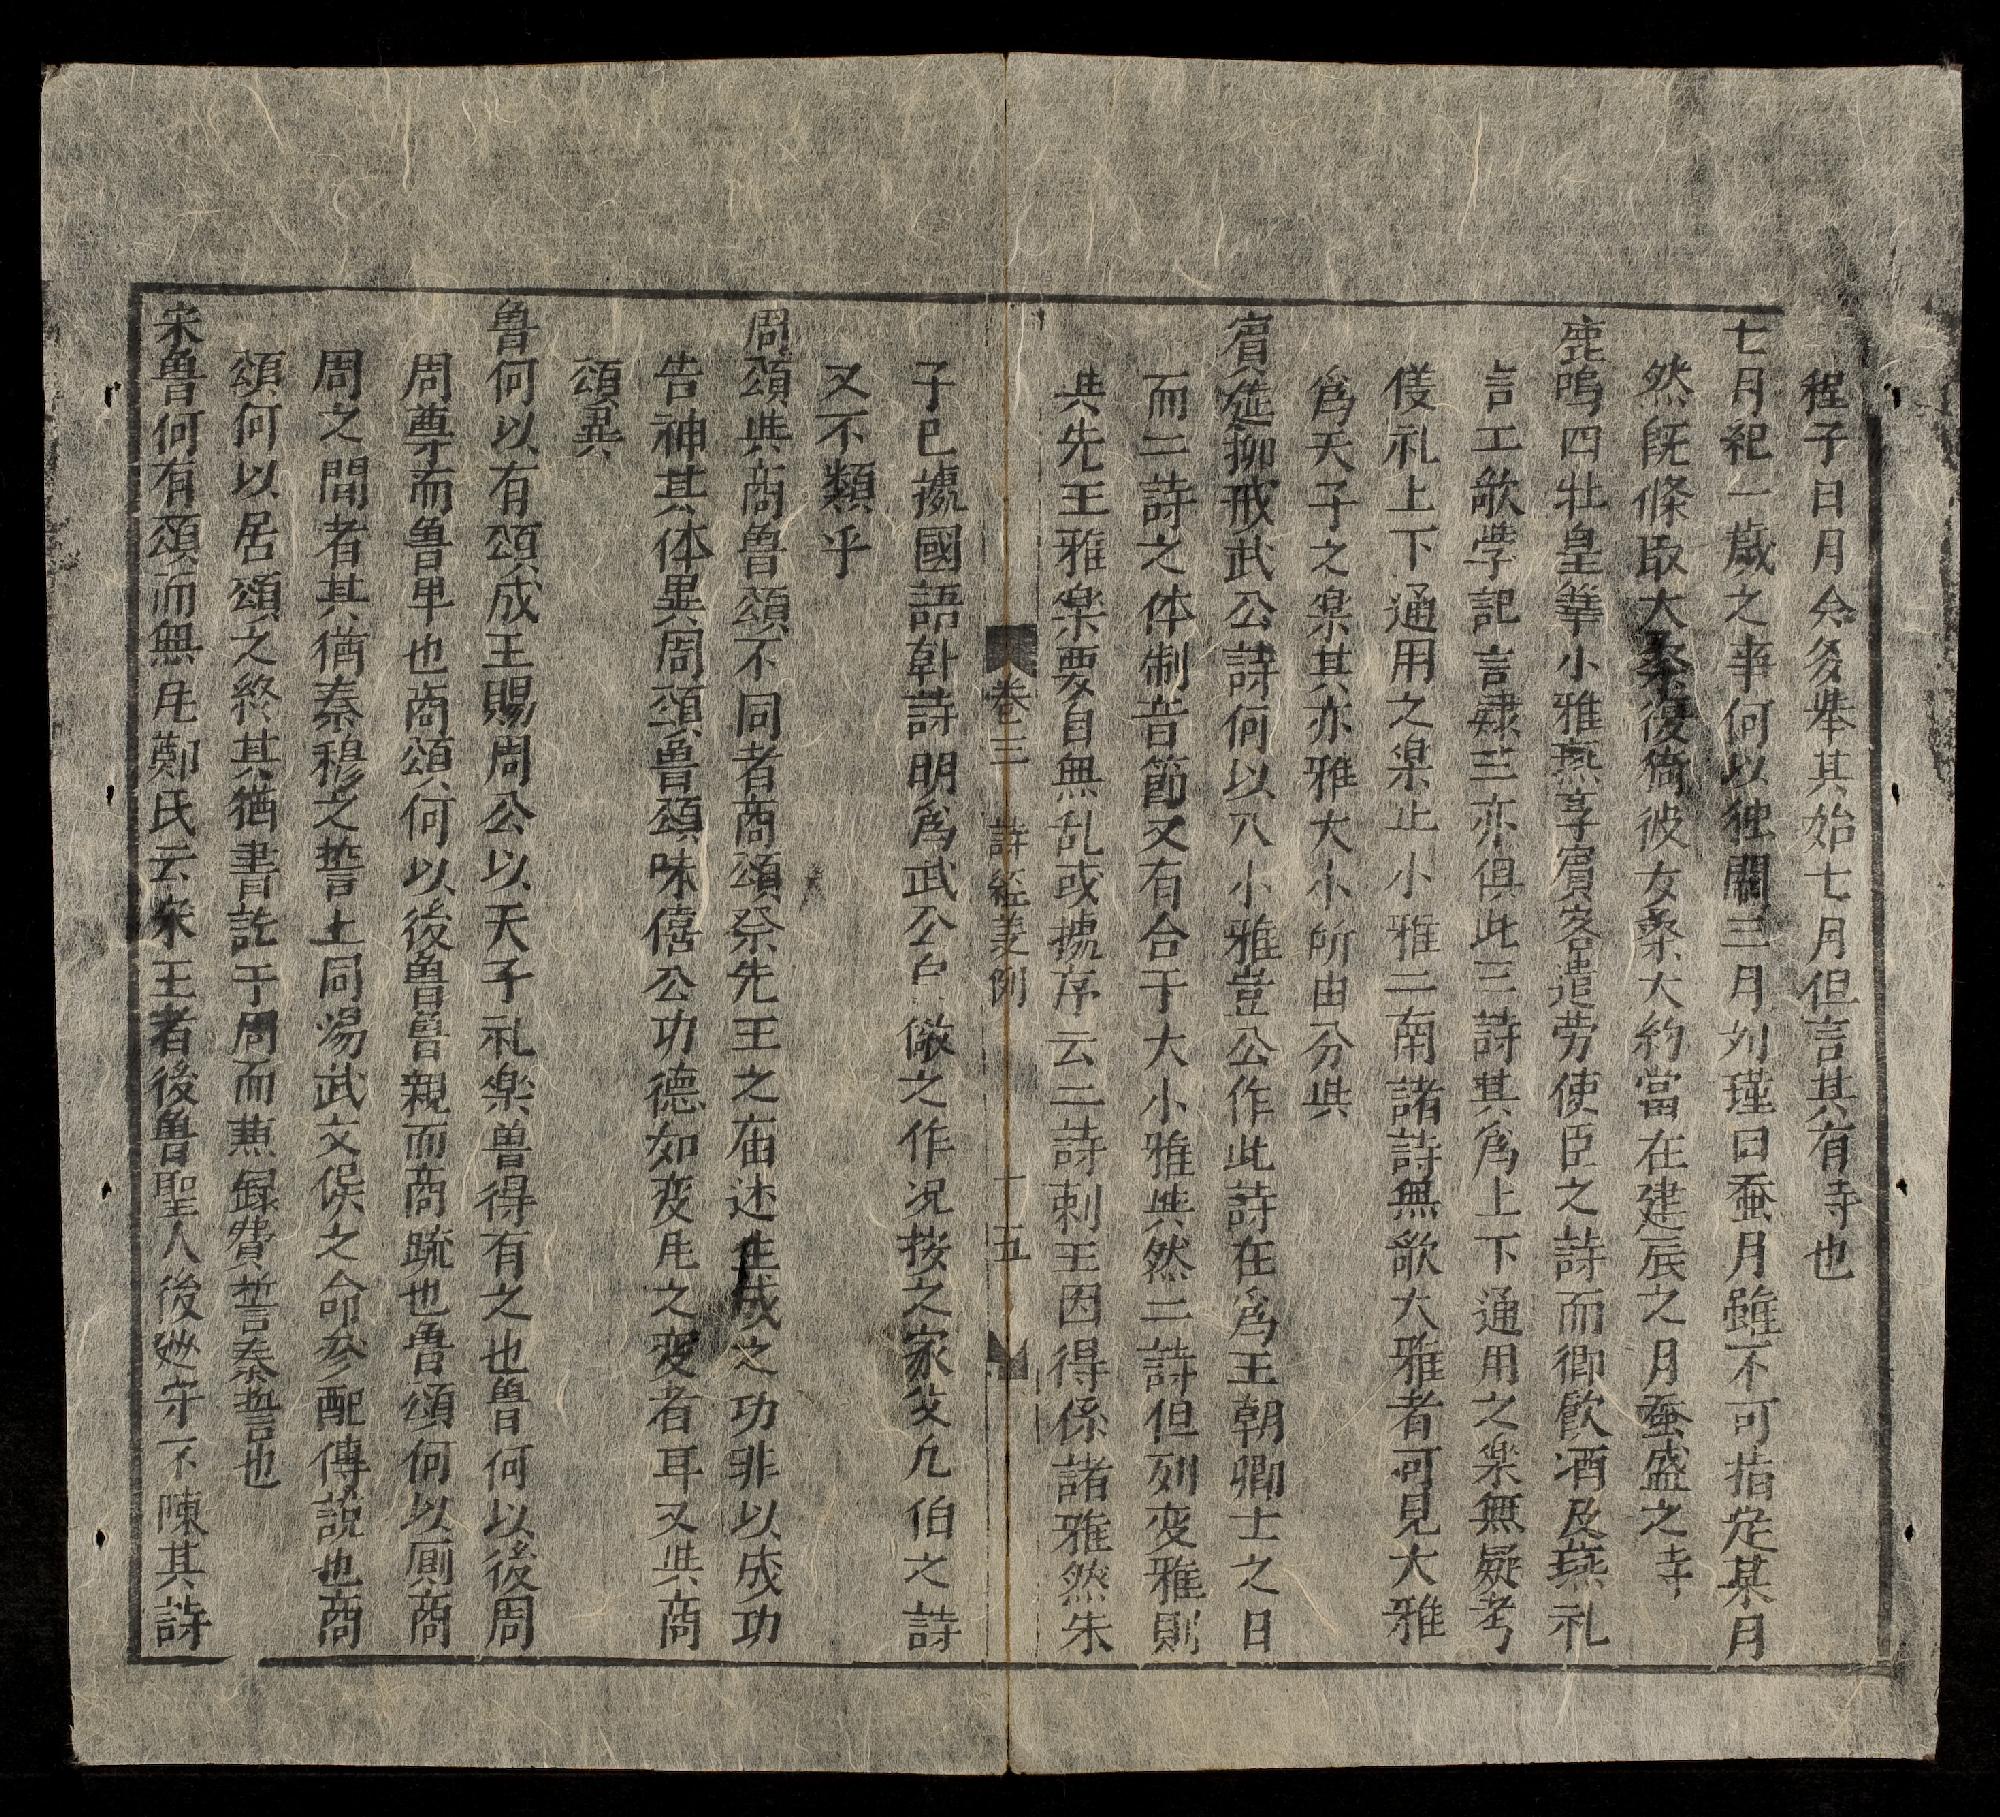 程子曰月令多举其始七月但言其有寺也
七月紀一歲之事何以独闕三月刘瑾曰蚕月雖不可指定某月
然既條取大桑復猗彼女桑大約當在建辰之月蚕盛之寺
鹿鳴四牡皇華小雅燕享賓客遣劳使臣之詩而鄉飲酒及燕礼
言工歌孝記言肄三亦俱此三詩其為上下通用之楽無疑考
仪礼上下通用之楽止小雅二南諸詩無歌大雅者可見大雅
為天子之楽其亦雅大小所由分欤
賓筵抑戒武公詩何以入小雅豈公作此詩在為王朝卿士之日
而二詩之体制音節又有合于大小雅欤然二詩但列变雅則
其先王雅楽要自無乱或据序云二詩刺王因得係諸雅然朱
卷三 詩經 十五
子已據國語韓詩明為武公自儆之作况按之家父凡伯之詩
又不類乎
周頌與商魯頌不同者商頌祭先王之庙述生成之功非以成功
告神其体異周頌魯頌味僖公功德如变凡之变者耳又與商
頌異
魯何以有頌成王賜周公以天子礼楽兽得有之也魯何以後周
周尊而魯卑也商頌何以後魯魯親而商疏也魯頌何以厠商
周之間者其猶秦穆之誓上同湯武文侯之命参配傳說也商
頌何以居頌之終其猶書託于周而兼録費誓秦誓也
宋魯何有頌而無凡鄭氏云宋王者後魯聖人後巡守不陳其詩